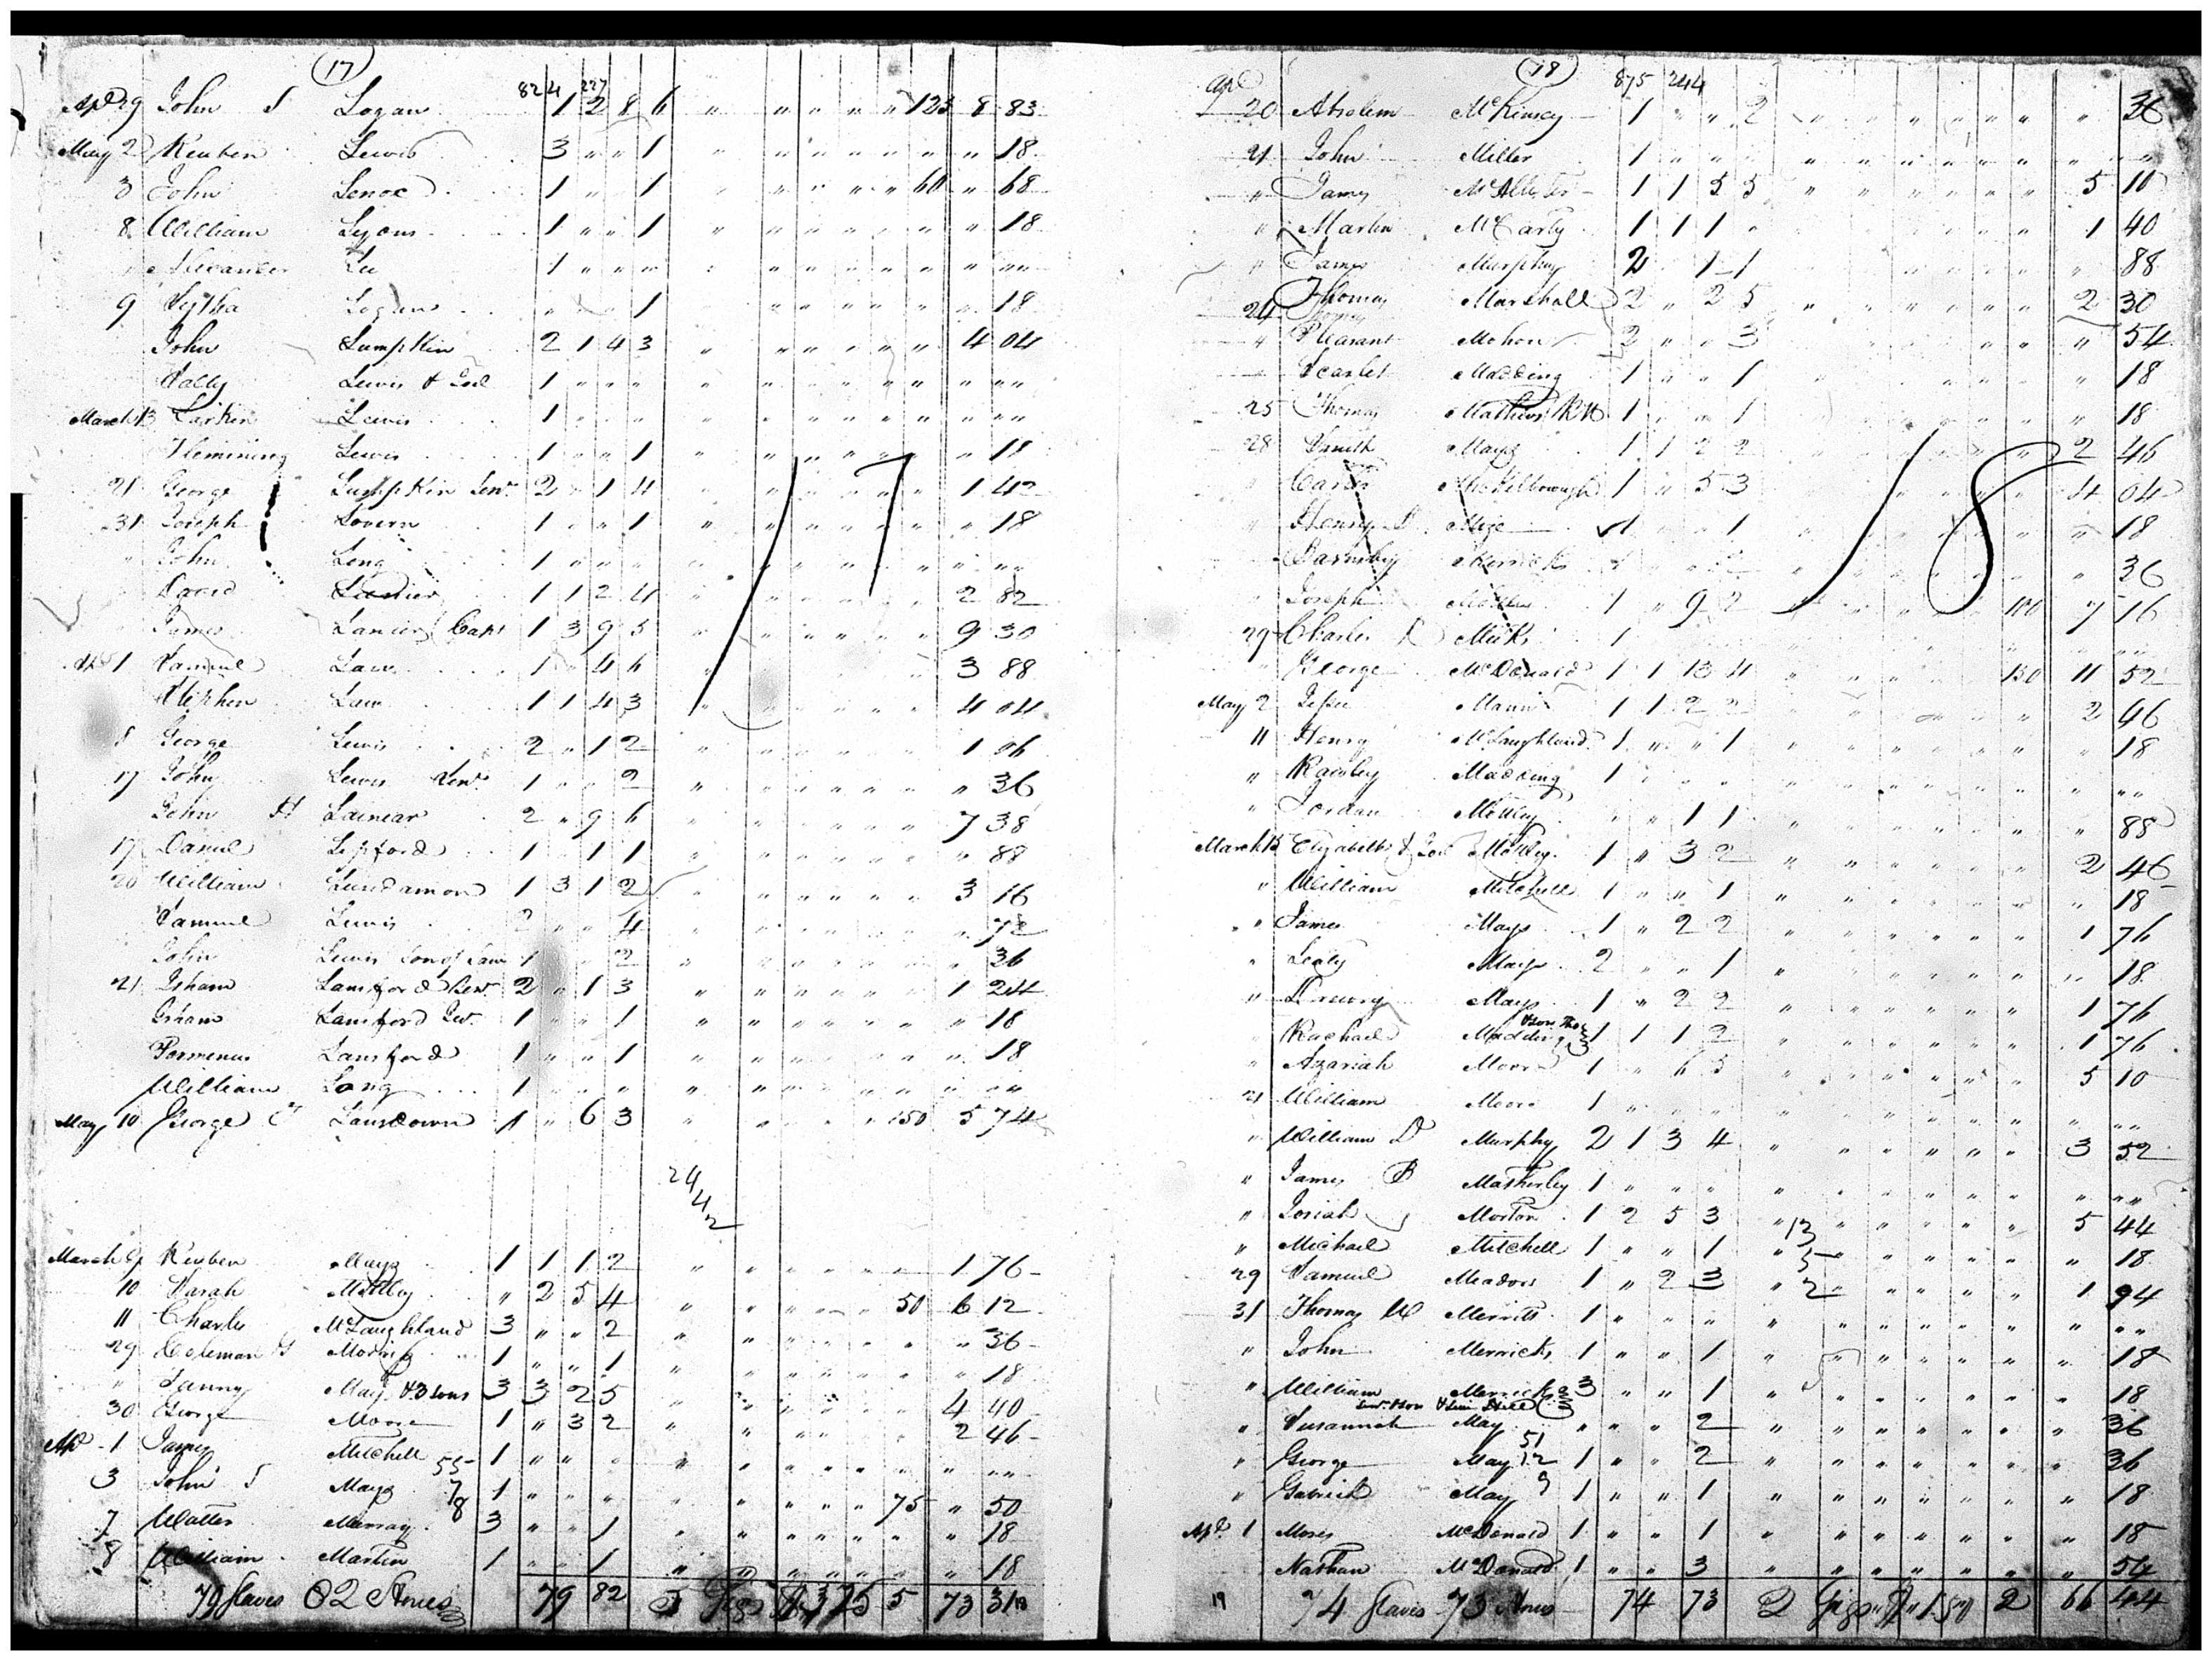 (17)
824 227
Apl 29 John S Logan 1 2 8 6 " " " " " 125 8 83
May 2 Reuben Lewis 3 " " 1 " " " " " " " 18
3 John Lenox 1 " 1 " " " " 60 " 68
8 William Lyons 1 " " 1 " " " " " " " 18
" Alexander Lee 1 " " " " " " " " " " " "
9 Logan " 1 " " " " " " " 18
John Lumpkin 2 1 4 3 " " " " " " 4 04
Sally Lewis & Son 1 " " " " " " " " " " " "
March 13 Larkin Lewis 1 " " " " " " " " " " " "
Flemming Lewis 1 " " 1 " " " " " " " 18
21 George Lumpkin Senr. 2 " 1 4 " " " " " " 1 42
31 Joseph Lovern 1 " " 1 " " " " " " " 18
" John Long 1 " " " " " " " " " " " "
David Lanier 1 1 2 4 " " " " " " 2 82
James Lanier (Capt 1 3 9 5 " " " " " " 9 30
Apl 1 Samuel Law 1 " 4 6 " " " " " " 3 88
Stephen Law 1 1 4 3 " " " " " " 4 04
8 George Lewis 2 " 1 2 " " " " " " 1 06
17 John Lewis Senr. 1 " " 2 " " " " " " " 36
John H Lainear 2 " 9 6 " " " " " " 7 38
17 Daniel Lipford 1 " 1 1 " " " " " " " 88
20 William Lundamon 1 3 1 2 " " " " " " 3 16
Samuel Lewis 2 " " 4 " " " " " " " 72
John Lewis Son of Saml 1 " " 2 " " " " " " " 36
21 Isham Lansford Senr. 2 " 1 3 " " " " " " 1 24
Isham Lansford Jur. 1 " " 1 " " " " " " " 18
Parmenus Lansford 1 " " 1 " " " " " " " 18
William Long 1 " " " " " " " " " " " "
May 10 George C Lansdown 1 " 6 3 " " " " " 150 5 74
17
2442
March 9 Reuben Mays 1 1 1 2 " " " " " " 1 76
10 Sarah Motley " 2 5 4 " " " " " 50 6 12
11 Charles McLaughland 3 " " 2 " " " " " " " 36
29 Coleman 1 " " 1 " " " " " " " 18
" Fanny May & 3 sons 3 3 2 5 " " " " " " 4 40
30 George Moore 1 " 3 2 " " " " " " 2 46
Apl 1 James Mitchell 1 " " " " " " " " " " " "
55
3 John S Mays 1 " " " " " " " " 75 " 50
7
8
7 Walter Murray 3 " " 1 " " " " " " " 18
8 William Martin 1 " " 1 " " " " " " " 18
79 Slaves 82 Horses 79 82 5 Gigs $ 375 5 73 31
(18)
875 244
Apl
20 Absolem McKinsey 1 " " 2 " " " " " " " 36
21 John Miller 1 " " " " " " " " " " " "
" James McAllister 1 1 5 5 " " " " " " 5 10
" Martin McCarty 1 1 1 " " " " " " " 1 40
" James Murphy 2 " 1 1 " " " " " " " 88
24 Thomas Marshall 2 " 2 5 " " " " " " 2 30
" Pleasant Mahon 2 " " 3 " " " " " " " 54
Scarlet Madding 1 " " 1 " " " " " " " 18
25 Thomas Mathews 1 " " 1 " " " " " " " 18
28 Mays 1 1 2 2 " " " " " " 2 46
" 1 " 5 3 " " " " " " 4 04
" Henry Mize 1 " " 1 " " " " " " " 18
Merricks 36
" Joseph 1 " 9 2 " " " " " 100 7 16
29 Charles Meeks 1 " " " " " " " " " " " "
" George McDonald 1 1 13 4 " " " " " 150 11 52
May 2 Jesse Mann 1 1 2 2 " " " " " " 2 46
11 Henry McLaughland 1 " " 1 " " " " " " " 18
" Madding 1 " " " " " " " " " " " "
" Jordan Motley " " 1 1 " " " " " " " 88
March 15 Elizabeth & Son Motley 1 " 3 2 " " " " " " 2 46
" William Mitchell 1 " " 1 " " " " " " " 18
" James Mays 1 " 2 2 " " " " " " 1 76
" Mays 2 " " 1 " " " " " " " 18
" Drewry Mays 1 " 2 2 " " " " " " 1 76
" Rachael Madding & son Tho 1 1 1 2 " " " " " " 1 76
" Azariah Moore 1 " 6 5 " " " " " " 5 10
21 William Moore 1 " " " " " " " " " " " "
" William D Murphy 2 1 3 4 " " " " " " 3 52
" James B Matherley 1 " " " " " " " " " " " "
" Josiah Morton 1 2 5 3 " " " " " " 5 44
13
" Michael Mitchell 1 " " 1 " " " " " " " 18
5
29 Samuel Meadows 1 " 2 3 " " " " " " 1 94
2
31 Thomas W Merritt 1 " " " " " " " " " " " "
" John Merricks 1 " " 1 " " " " " " " 18
" William Merricks 3 " " 1 " " " " " " " 18
" Susannah May " " " 2 " " " " " " " 36
51
" George May 1 " " 2 " " " " " " " 36
12
" Gabriel May 1 " " 1 " " " " " " " 18
9
Apl 1 Moses McDonald 1 " " 1 " " " " " " " 18
Nathan McDonald 1 " " 3 " " " " " " " 54
18
19 74 Slaves 73 Horses 74 73 2 Gigs 2 66 44